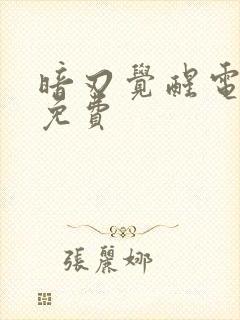 暗刃覺醒電
免費
張麗娜